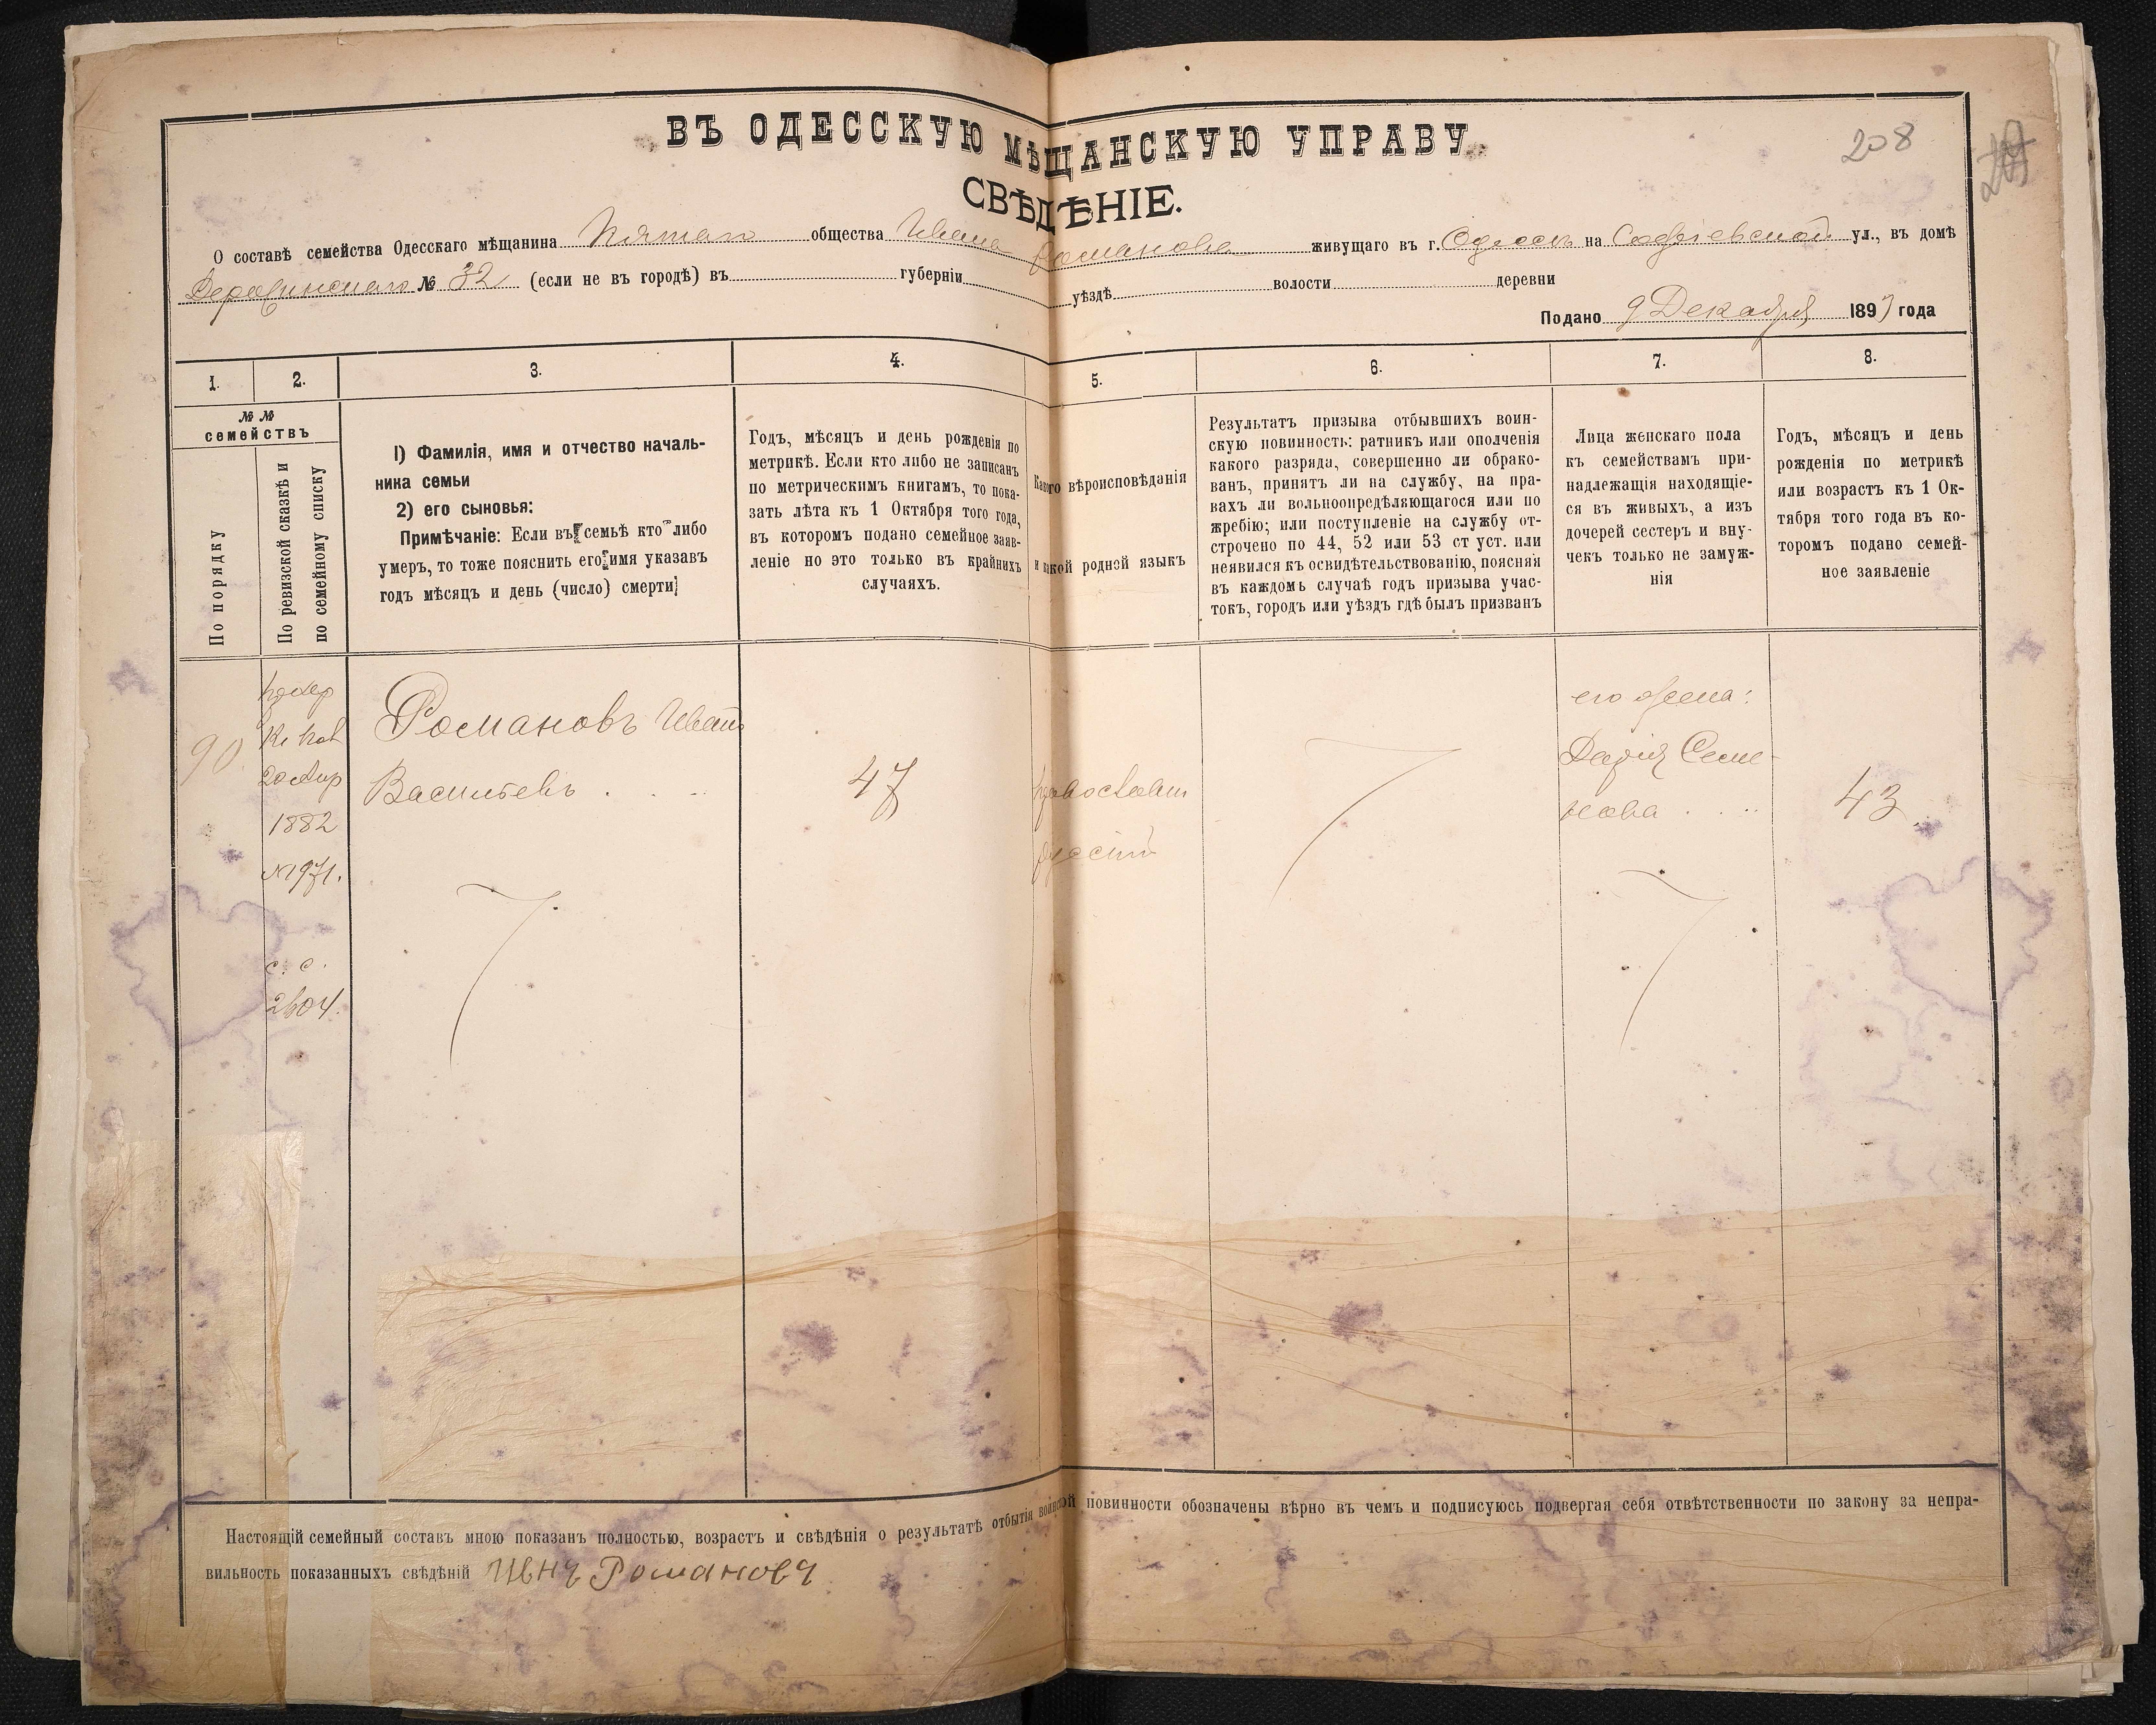 ВЪ ОДЕССКУЮ МѢЩАНСКУЮ УПРАВУ.
208
СВѢДѢНІЕ.
О составѣ семейства Одесскаго мѣщанина Пятаго общества Ивана Романова живущаго въ г. Одессѣ на Софіевской ул., въ домѣ
№ 32 (если не въ городѣ) въ губерніи уѣздѣ волости деревни
Подано 9 Декабря 1897 года
1. 2. 3. 4. 5. 6. 7. 8.
№ №
семействъ
По порядку
По ревизской сказкѣ и
по семейному списку
1) Фамилія, имя и отчество началь-
ника семьи
2) его сыновья:
Примѣчаніе: Если въ семьѣ кто либо
умеръ, то тоже пояснить его имя указавъ
годъ мѣсяцъ и день (число) смерти
Годъ, мѣсяцъ и день рожденія по
метрикѣ. Если кто либо не записанъ
по метрическимъ книгамъ, то пока-
зать лѣта къ 1 Октября того года,
въ которомъ подано семейное заяв-
леніе но это только въ крайнихъ
случаяхъ.
Какого вѣроисповѣданія
и какой родной языкъ
Результатъ призыва отбывшихъ воин-
скую повинность: ратникъ или ополченія
какого разряда, совершенно ли обрако-
ванъ, принятъ ли на службу, на пра-
вахъ ли вольноопредѣляющагося или по
жребію; или поступленіе на службу от-
строчено по 44, 52 или 53 ст уст. или
неявился къ освидѣтельствованію, поясняя
въ каждомъ случаѣ годъ призыва учас-
токъ, городъ или уѣздъ гдѣ былъ призванъ
Лица женскаго пола
къ семействамъ при-
надлежащія находящіе-
ся въ живыхъ, а изъ
дочерей сестеръ и вну-
чекъ только не замуж-
нія
Годъ, мѣсяцъ и день
рожденія по метрикѣ
или возрастъ къ 1 Ок-
тября того года въ ко-
торомъ подано семей-
ное заявленіе
90.
20 Апр
1882
№1971.
с. с.
2604.
Романовъ Иванъ
Васильевъ
47
православн
русскій
его жена:
Дарія Семе-
нова
43
Настоящій семейный составъ мною показанъ полностью, возрастъ и свѣдѣнія о результатѣ отбытія воинской повинности обозначены вѣрно въ чемъ и подписуюсь подвергая себя отвѣтственности по закону за непра-
вильность показанныхъ свѣдѣній Ивнъ Романовъ